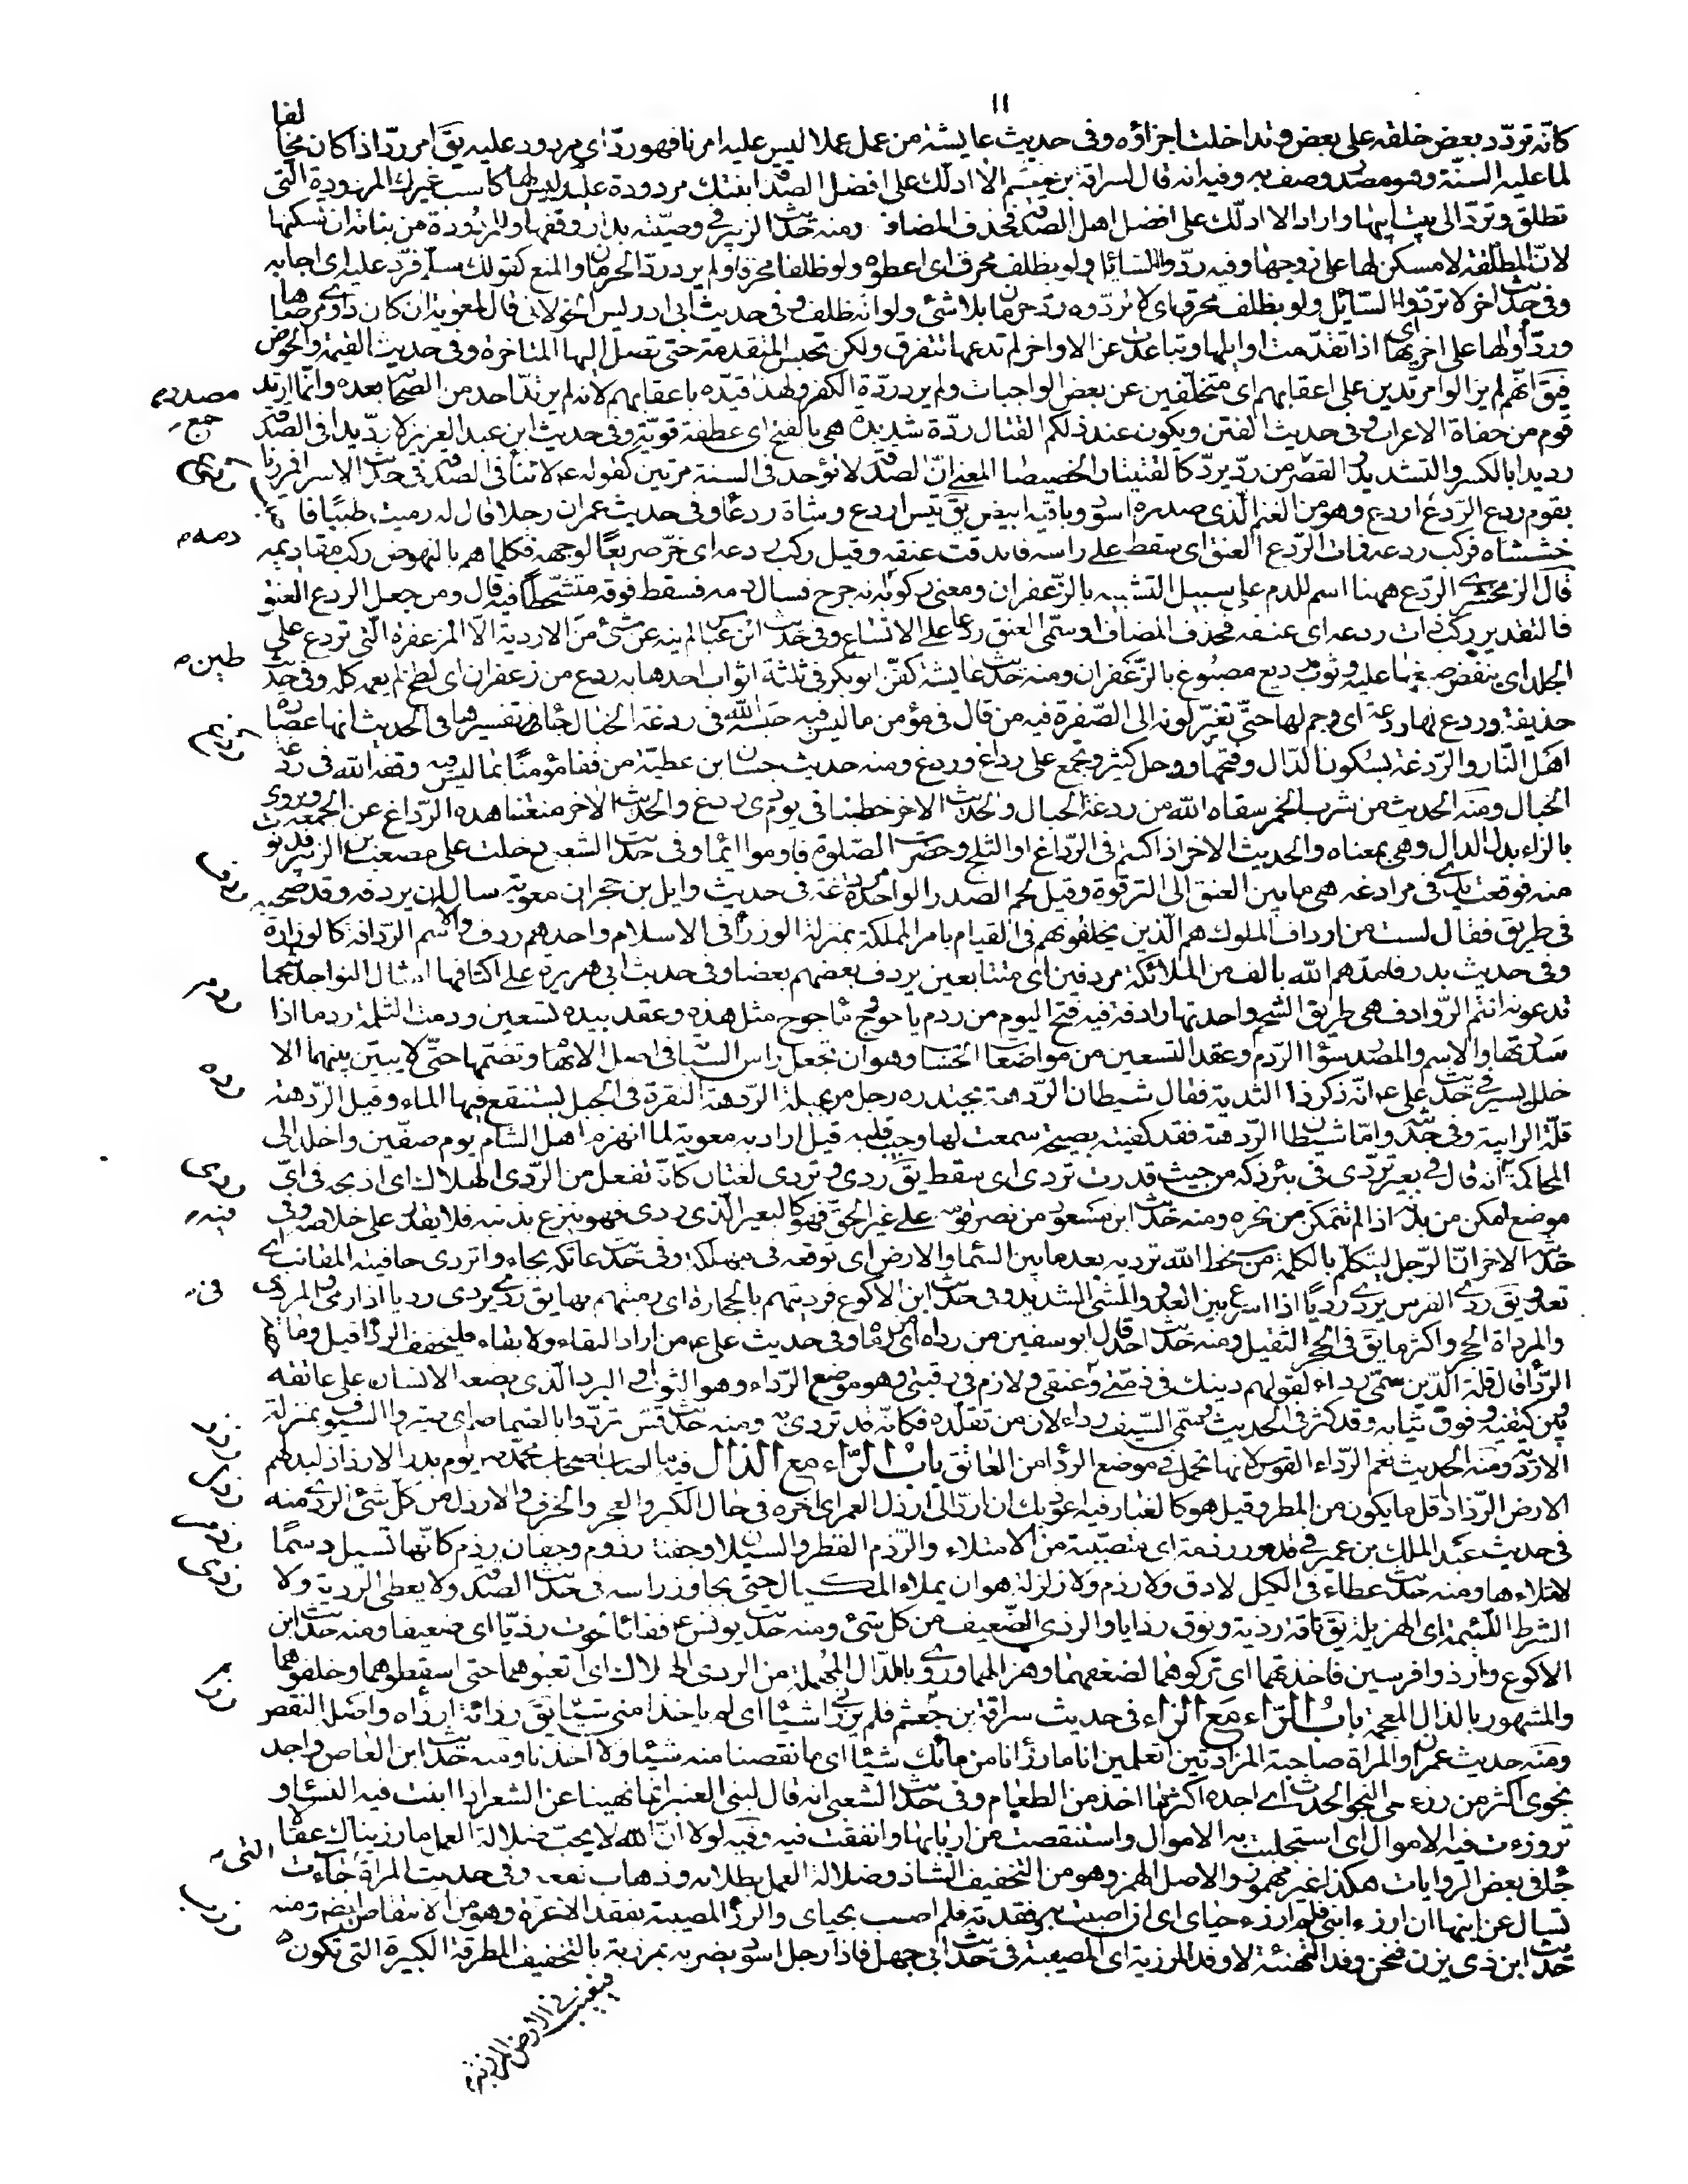 ١١
كانّه تردّد بعض خلقه على بعض وتداخلت اجزاؤه وفى حديث عايشة من عمل عملا ليس عليه امرنا فهو ردّ اى مردود عليه يقَ امر ردّ اذا كان مخالفا
لما عليه السنّة وهو مصدر وصف به وفيه انه قال لسراقة بن جعشم الا ادلّك على افضل الصدقة ابنتك مردودة عليك ليس لها كاسب غيرك المردودة التى
تطلق وتردّ الى بيت ابيها واراد الا ادلّك على افضل اهل الصدقة فحذف المضاف ومنه حديث الزبير فى وصيّته بدار وقفها وللمردودة من بناته ان تسكنها
لانّ المطلّقة لا مسكن لها على زوجها وفيه ردّوا السّائل ولو بظلف محرق اى اعطوه ولو ظلفا محرقا ولم يرد ردّ الحرمان والمنع كقولك سلّم فردّ عليه اى اجابه
وفى حديث اخر لا تردّوا السّائل ولو بظلف محرق اى لا تردّوه ردّ حرمان بلا شئ ولو انه ظلف وفى حديث ابى ادريس الخولانى قال لمعوية ان كان داوى مرضاها
وردّ اولها على اخريها اى اذا تقدّمت اوايلها وتباعدت عن الاواخر لم تدعها تتفرق ولكن تحبس المتقدمة حتى تصل اليها المتاخرة وفى حديث القيمة والحوض
فيقَ انّهم لم يزالوا مرتدين على اعقابهم اى متخلّفين عن بعض الواجبات ولم يرد ردّة الكفر ولهذا قيدّه باعقابهم لانه لم يرتدّ احد من الصحابة بعده وانّما ارتد
قوم من جفاة الاعراب وفى حديث الفتن ويكون عند ذلكم القتال ردّة شديدة هى بالفتح اى عطفة قويّة وفى حديث ابن عبد العزيز لا ردّيدا فى الصدقة
رديدا بالكسر والتشديد والقصر من ردّ يردّ كالقتيتا والخصيصا المعنى انّ الصدقة لا تؤخذ فى السنة مرتين كقوله ع لا ثنا فى الصدقة فى حديث الاسراء فمررنا
بقوم ردع الرّدع اردع وهو من الغنم الّذى صدره اسود وباقيه ابيض يقَ تيس اردع وشاة ردعا وفى حديث عمر ان رجلا قال له رميت ظبيًا فاصبت
خششاه فركب ردعه فمات الرّدع العنق اى سقط على راسه فاندقت عنقه وقيل ركب ردعه اى خرّ صريعًا لوجهه فكلما هم بالنهوض ركب مقاديمه
قال الزمخشرى الرّدع ههنا اسم للدم على سبيل التشبيه بالزّعفران ومعنى ركوبه انه جرح فسال دمه فسقط فوقه متشحّطًا فيه قال ومن جعل الردع العنق
فالتقدير ركب ذات ردعه اى عنقه فحذف المضاف او سمّى العنق ردعا على الاتساع وفى حديث ابن عباس لم ينه عن شئ من الاردية الّا المزعفرة الّتى تردع على
الجلد اى تنفض صبغها عليه وثوب رديع مصبوغ بالزّعفران ومنه حديث عايشة كفّن ابو بكر فى ثلثة اثواب احدها به ردع من زعفران اى لطخ لم يعمه كله وفى حديث
حذيفة وردع لها ردعة اى وجم لها حتّى تغيّر لونه الى الصّفرة فيه من قال فى مؤمن ما ليس فيه حبسه اللّه فى ردغة الخبال جاء تفسيرها فى الحديث انها عصارة
اهل النّار والرّدغة بسكون الدّال وفتحها ووحل كثير وتجمع على رداغ وردغ ومنه حديث حسان ابن عطيّة من قفا مؤمنًا بما ليس فيه وقفه اللّه فى ردغة
الخبال ومنه الحديث من شرب الخمر سقاه اللّه من ردغة الخبال والحديث الاخر خطبنا فى يوم ذى ردغ والحديث الاخر منعتنا هذه الرّداغ عن الجمعة ويروى
بالزاء بدل الدال وهى بمعناه والحديث الاخر اذا كنتم فى الرّداغ او الثلج وحضرت الصّلوة فاوموا ايماء وفى حديث الشعبى دخلت على مصعب بن الزبير فدنوت
منه فوقعت يدى فى مرادغه هى ما بين العنق الى الترقوة وقيل لحم الصدر الواحدة مردغة فى حديث وايل بن حجر ان معوية سال ان يردفه وقد صحبه
فى طريق فقال لست من ارداف الملوك هم الّذين يخلفونهم فى القيام بامر المملكة بمنزلة الوزراء فى الاسلام واحدهم ردف والاسم الرّدافة كالوزارة
وفى حديث بدر فامدّهم اللّه بالف من الملائكة مردفين اى متتابعين يردف بعضهم بعضا وفى حديث ابى هريرة على اكتافها امثال النواجد شحما
تدعونه انتم الرّوادف هى طريق الشحم واحدتها رادفة فيه فتح اليوم من ردم ياجوج ماجوج مثل هذه وعقد بيده تسعين ردمت الثلمة ردما اذا
سددتها والاسم والمصدر سواء الرّدم وعقد التسعين من مواضعات الحساب وهو ان تجعل راس السّبابة فى اصل الابهام وتضمّها حتّى لا يبين بينهما الا
خلل يسير فى حديث على ع انّه ذكر ذا الثدية فقال شيطان الرّدهة يحتدره رجل من بجيلة الرّدهة النقرة فى الجبل يستنقع فيها الماء وقيل الرّدهة
قلّة الرابية وفى حديثه وامّا شيطان الرّدهة فقد كفيته بصيحة سمعت لها وجيب قلبه قيل اراد به معوية لما انهزم اهل الشام يوم صفّين واخلد الى
المحاكمة انه قال فى بعير تردّى فى بئر ذكه من حيث قدرت تردى اى سقط يقَ ردى وتردى لغتان كانّه تفعل من الرّدى الهلاك اى اذبحه فى اىّ
موضع امكن من بدنه اذا لم تتمكن من نحره ومنه حديث ابن مسعود من نصر قومه على غير الحقّ فهو كالبعير الّذى ردى فهو ينزع بذنبه فلا يقدر على خلاصه وفى
حديثه الاخر انّ الرّجل ليتكلّم بالكلمة من سخط اللّه ترديه بعد ما بين السّماء والارض اى توقعه فى مهلكة وفى حديث عاتكة بجاواء تردى حافتيه المقانب اى
تعدو يقَ ردى الفرس يردى رديًا اذا اسرع بين العدو والمشى الشديد وفى حديث ابن الاكوع فرديتهم بالحجارة اى رميتهم بها يقَ ردى يردى رديا اذا رمى والمردى
والمرداة الحجر واكثر ما يقَ فى الحجر الثقيل ومنه حديث احد قال ابو سفين من رداه اى من رماه وفى حديث على ع من اراد البقاء ولا بقاء فليخفف الرداء قيل وما
الرّداء قال قلة الدّين سمّى رداء لقولهم دينك فى ذمّتى وفى عنقى ولازم فى رقبتى وهو موضع الرّداء وهو الثوب او البرد الّذى يضعه الانسان على عاتقه
وبين كتفيه وفوق ثيابه وقد كثر فى الحديث وسمّى السّيف رداء لان من تقلّده فكانّه قد تردى به ومنه حديث قس تردّوا بالصماصم اى صيّروا السيوف بمنزلة
الاردية ومنه الحديث نعم الرّداء القوس لانها تحمل فى موضع الرداء من العاتق باب الرّاء مع الذال فيه ما اصاب اصحاب محمّد ص يوم بدر الا رذاذ لبد لهم
الارض الرّذاذ اقل ما يكون من المطر وقيل هو كالغبار فيه اعوذ بك ان اردّ الى ارذل العمر اى اخره فى حال الكبر والعجز والخرف والارذل من كلّ شئ الردى منه
فى حديث عبد الملك بن عمير فى قدور رذمة اى متصبّبة من الامتلاء والرّذم القطر والسيلان وجفنة رذوم وجفان رذم كانّها تسيل دسمًا
لامتلاءها ومنه حديث عطاء فى الكيل لا دق ولا رذم ولا زلزلة هو ان يملاء المكيال حتى يجاوز راسه فى حديث الصدقة ولا يعطى الرّذية ولا
الشرط اللّئيمة اى الهزيلة يقَ ناقة رذية ونوق رذايا والرذى الضّعيف من كل شئ ومنه حديث يونس ع فقاءه الحوت رذيّا اى ضعيفا ومنه حديث ابن
الاكوع وارذوا فرسين فاخذتهما اى تركوهما لضعفهما وهزالهما وروى بالدّال المهملة من الردى الهلاك اى اتعبوهما حتى اسقطوهما وخلفوهما
والمشهور بالذال المعجمة باب الرّاء مع الزّاء فى حديث سراقة بن جعشم فلم يرزانى شيئا اى لم ياخذا منى شيئا يقَ رزاته ارزاه واصل النقص
ومنه حديث عمران والمراة صاحبة المزادتين اتعلمين انا ما رزانا من مائك شيئا اى ما نقصنا منه شيئا ولا اخذنا ومنه حديث ابن العاص واجد
نجوى اكثر من رزءى النجو الحدث اى اجده اكثر مما اخذ من الطعام وفى حديث الشعبى انه قال لبنى العنبر انما نهينا عن الشعر اذا ابنت فيه النساء و
تروزءت فيه الاموال اى استجلبت به الاموال واستنقصت من اربابها وانفقت فيه وفيه لولا انّ اللّه لا يحبّ ضلالة العمل ما رزيناك عقالا
جاء فى بعض الروايات هكذا غير مهموز والاصل الهمز وهو من التخفيف الشاذ وضلالة العمل بطلانه وذهاب نفعه وفى حديث المراة جاءت
تسال عن ابنها ان ارزء ابنى فلم ارزء حياى اى ان اصبت به وفقدته فلم اصب بحياى والرزء المصيبة بفقد الاعزة وهو من الانتقاص ايضم ومنه
حديث ابن ذى يزن فنحن وفد التهنئة لا وفد المرزية اى المصيبة فى حديث ابى جهل فاذا رجل اسود يضربه بمرزبة بالتخفيف المطرقة الكبيرة التى تكون